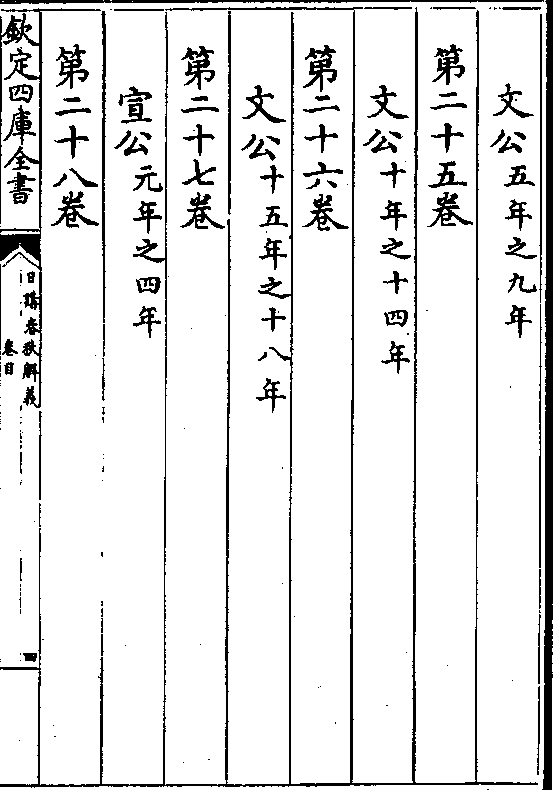 文公五年之九年
第二十五卷
文公十年之十四年
第二十六卷
文公十五年之十八年
第二十七卷
宣公元年之四年
第二十八卷
欽定四庫全書
日講春秋解義
卷目
四